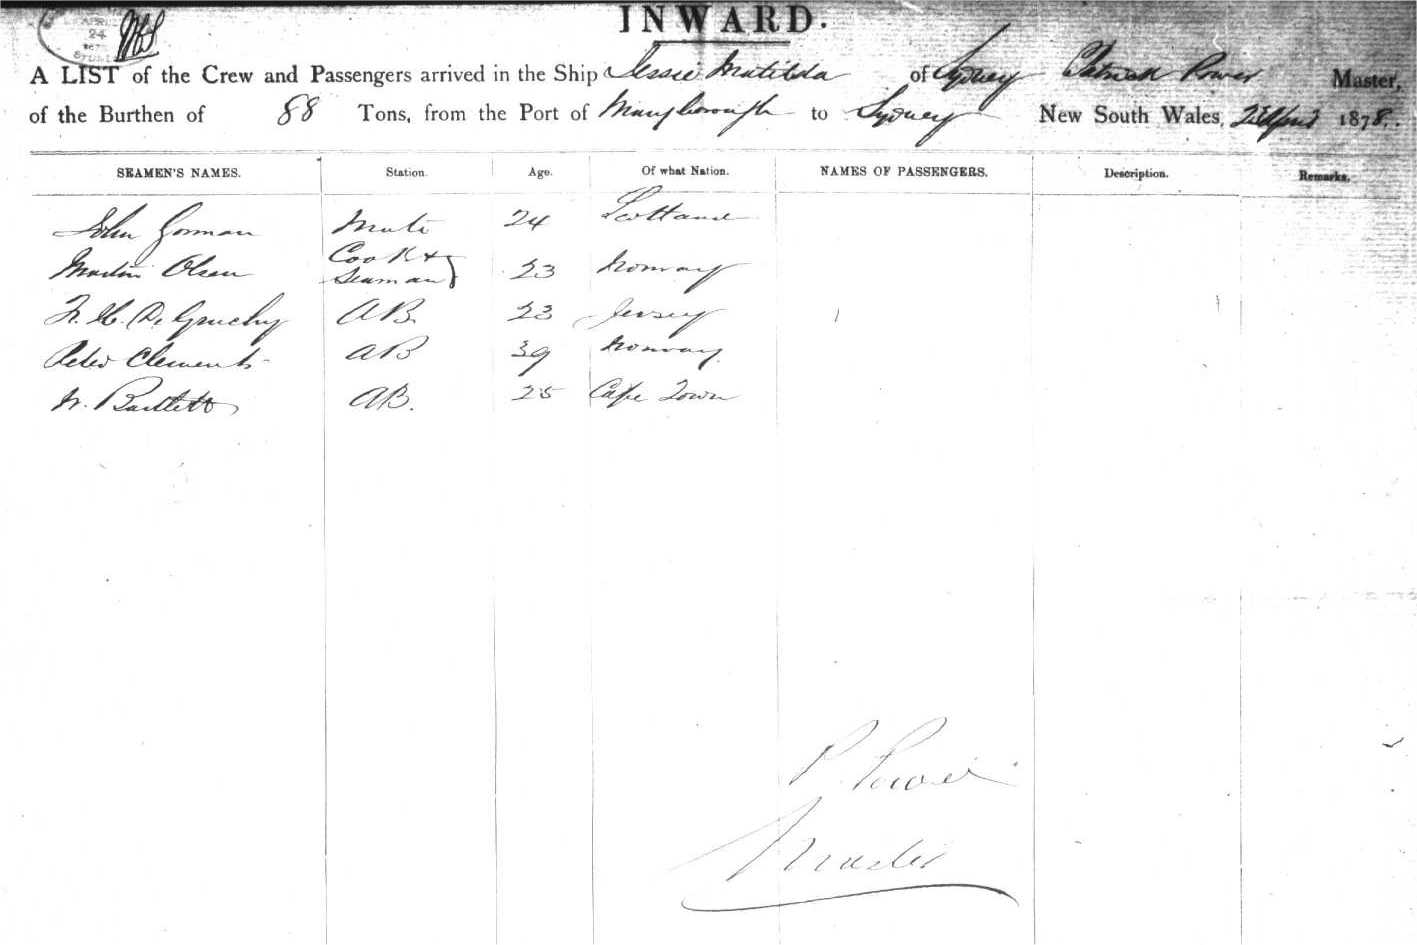 APRIL
24
INWARD.
A LIST of the Crew and Passengers arrived in the Ship Jessie Matilda of Sydney Patrick Power Master,
of the Burthen of 88 Tons, from the Port of Maryborough to Sydney New South Wales, April 1878.
SEAMEN'S NAMES. Station. Age. Of what Nation. NAMES OF PASSENGERS. Description. Remarks.
John Gorman Mate 24 Scotland
Martin Olsen Cook & Seaman 23 Norway
De Gruchy AB. 23 Jersey
Peter Clements AB 39 Norway
W. Bartlett AB. 25 Cape Town
P. Power
Master